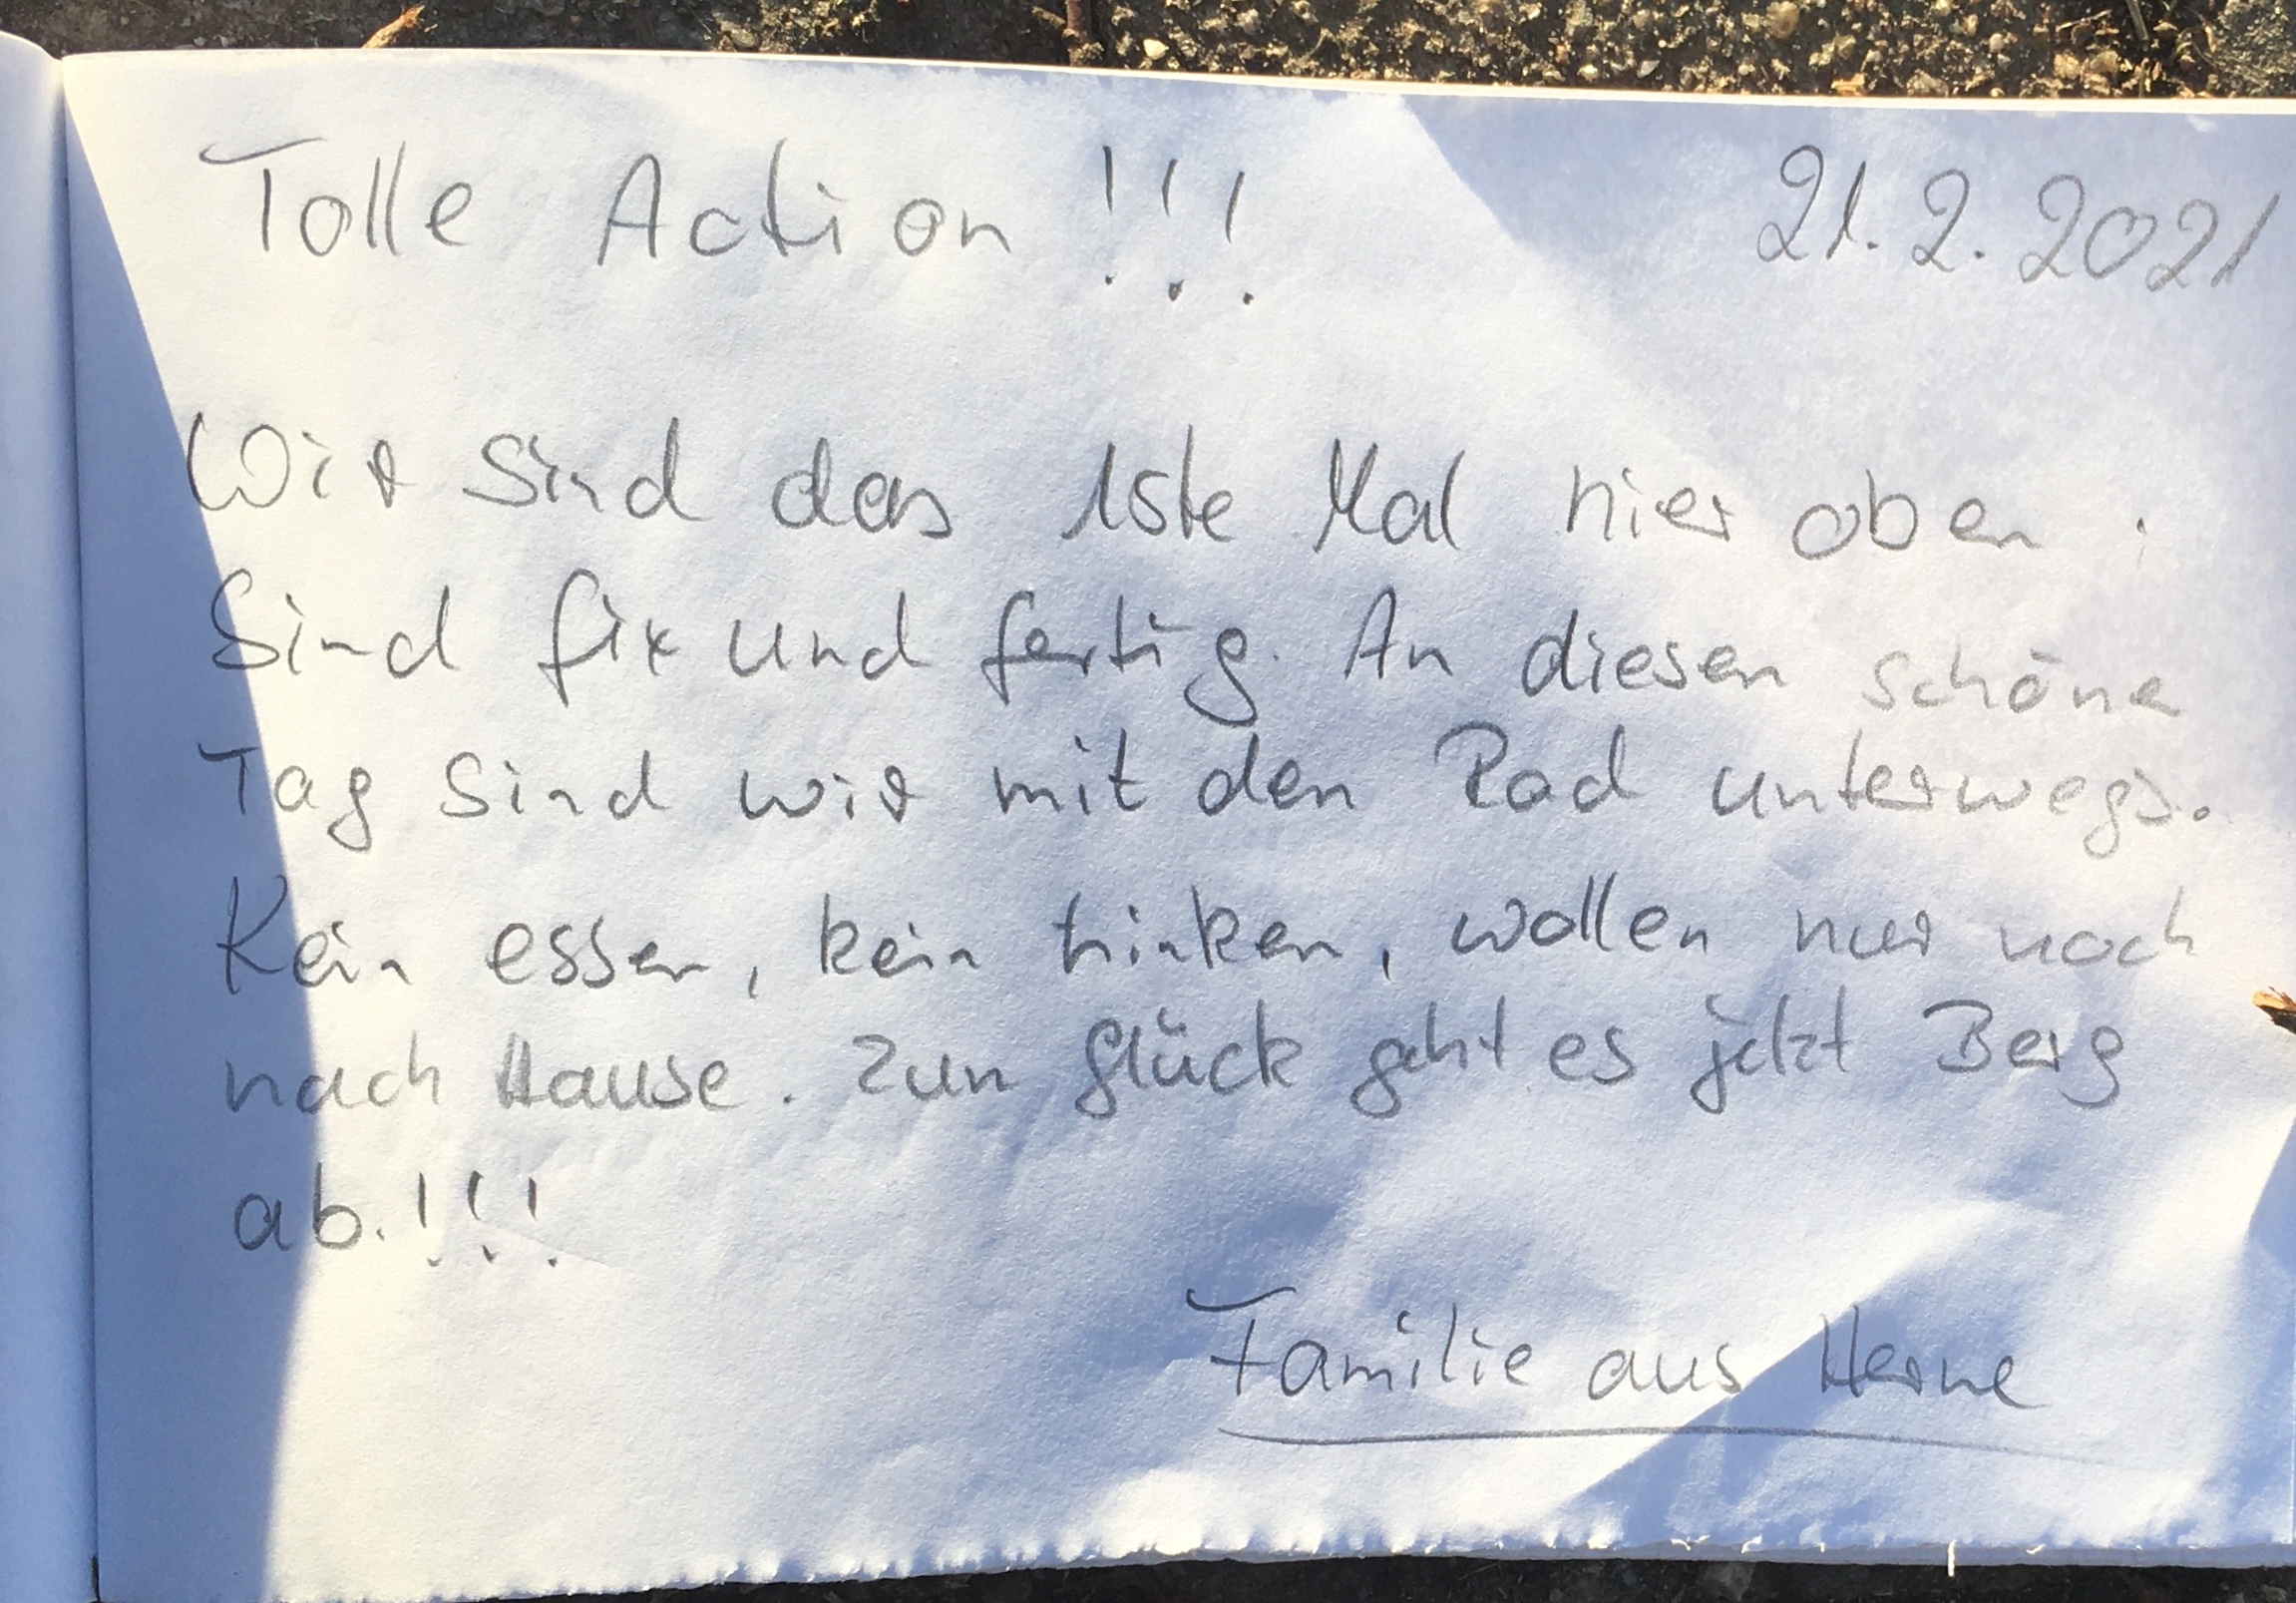 Tolle Action !!! 21.2.2021
Wir sind das 1ste Mal hier oben.
Sind fix und fertig. An diesen schöne
Tag sind wir mit den Rad unterwegs.
Kein essen, kein trinken, wollen nur noch
nach Hause. Zum Glück geht es jetzt Berg
ab.!!!
Familie aus Herne